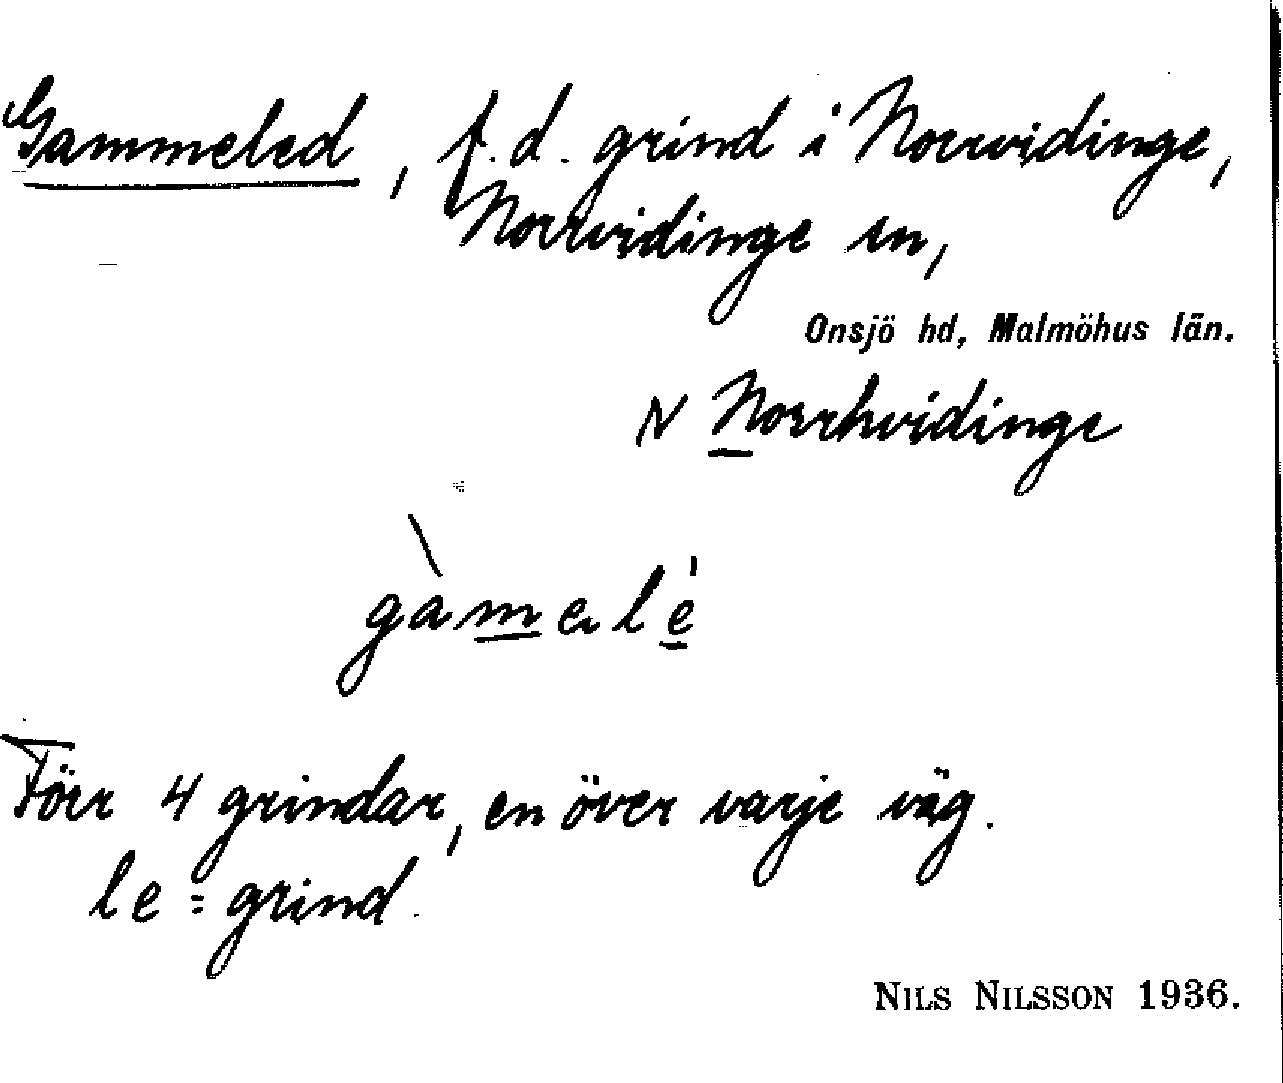 Gammeled, f.d. grind i Norrvidinge,
Norrvidinge sn,
Onsjö hd, Malmöhus län.
N Norrhvidinge
gàmelè
Förr 4 grindar, en över varje väg.
le = grind.
NILS NILSSON 1936.